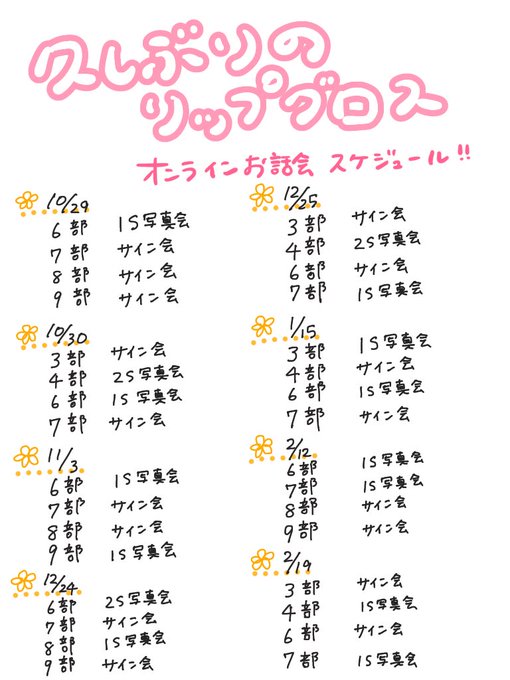 久しぶりの
リップグロス
オンラインお話会 スケジュール!!
10/29
6部 1S写真会
7部 サイン会
8部 サイン会
9部 サイン会
10/30
3部 サイン会
4部 2S写真会
6部 1S写真会
7部 サイン会
11/3
6部 1S写真会
7部 サイン会
8部 サイン会
9部 1S写真会
12/24
6部 2S写真会
7部 サイン会
8部 1S写真会
9部 サイン会
12/25
3部 サイン会
4部 2S写真会
6部 サイン会
7部 1S写真会
1/15
3部 1S写真会
4部 サイン会
6部 1S写真会
7部 サイン会
2/12
6部 1S写真会
7部 1S写真会
8部 サイン会
9部 サイン会
2/19
3部 サイン会
4部 1S写真会
6部 サイン会
7部 1S写真会